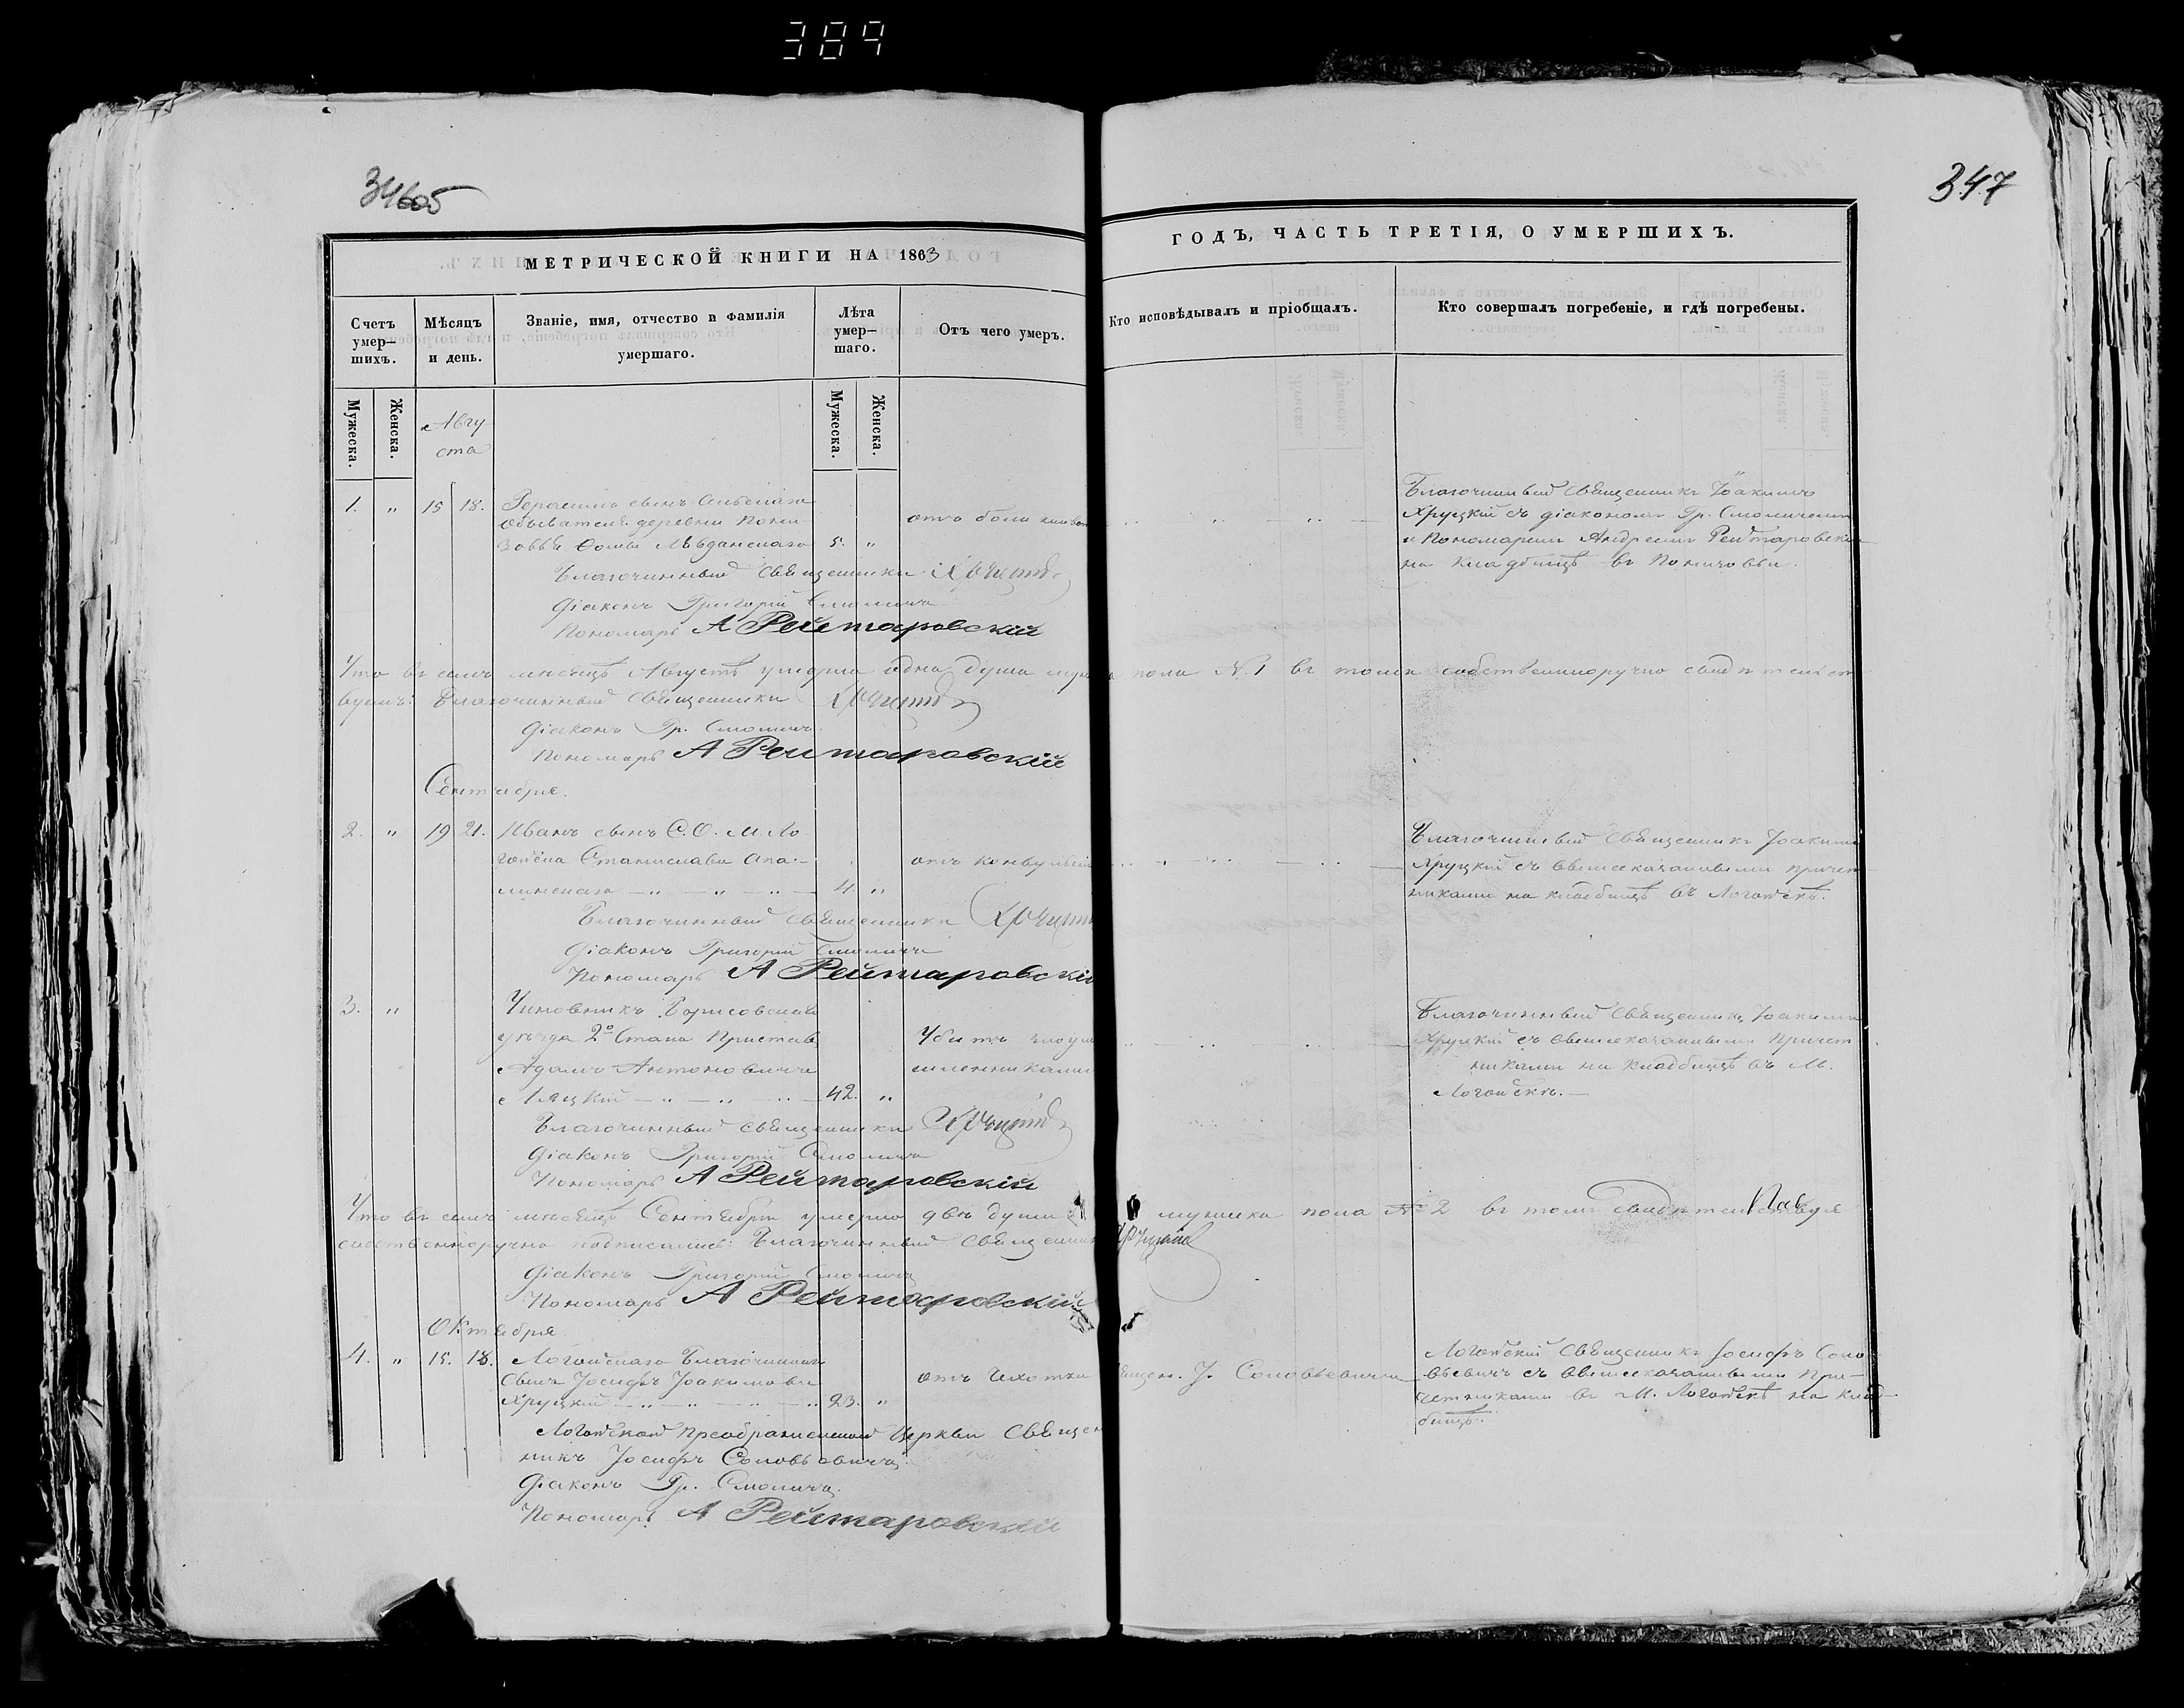 389
346об
347
МЕТРИЧЕСКОЙ КНИГИ НА 1863
ГОДЪ, ЧАСТЬ ТРЕТІЯ, О УМЕРШИХЪ.
Счетъ умер-шихъ.
Мѣсяцъ и день.
Званіе, имя, отчество и фамилія умершаго.
Лѣта умер-шаго.
Отъ чего умеръ.
Кто исповѣдывалъ и пріобщалъ.
Кто совершалъ погребеніе, и гдѣ погребены.
Мужеска.
Женска.
Авгу
ста
Мужеска.
Женска.
1. " 15 18.
обывателя деревни
Ѳомы 5. "
отъ боли
Благочинный Священникъ Іоакимъ
Хруцкій съ діакономъ Гр. Смоличемъ
и Пономаремъ Андреемъ Рейтаровски
на кладбищѣ въ
Благочинный Священникъ Хруцкій
Діаконъ Григорій Смоличъ
Пономарь А Рейтаровскій
Что въ семъ мѣсяцѣ Августѣ умерла одна душа пола № 1 въ томъ собственноручно свидѣтельст
вуемъ: Благочинный Священникъ Хруцкій
Діаконъ Гр. Смоличъ
Пономарь А Рейтаровскій
Сентября.
2. " 19 21. Иванъ сынъ С. О. М. Ло
гойска Станислава
4 "
отъ конвульсіи
Благочинный Священникъ Іоакимъ
Хруцкій съ вышесказанными причет
никами на кладбищѣ въ Логойскѣ.
Благочинный Священникъ Хруцкій
Діаконъ Григорій Смоличъ
Пономарь А Рейтаровскій
3. " Чиновникъ Борисовскаго
уѣзда 2º Стана Пристава
Адамъ Антоновичъ
42. "
Убитъ злоумы
шленниками
Благочинный Священникъ Іоакимъ
Хруцкій съ вышесказанными Причет
никами на кладбищѣ въ М.
Логойскѣ.
Благочинный Священникъ Хруцкій
Діаконъ Григорій Смоличъ
Пономарь А Рейтаровскій
Что въ семъ мѣсяцѣ Сентябрѣ умерло двѣ души мужеска пола № 2 въ томъ свидѣтельствуя
собственноручно подписались: Благочинный Священник Хруцкій
Діаконъ Григорій Смоличъ
Пономарь А Рейтаровскій
Октября.
4. " 15. 18. Логойскаго Благочиннаго
сынъ Іосифъ Іоакимовъ
Хруцкій 23. "
отъ Чахотки
Священ. І. Соловьевичъ
Логойскій Священникъ Іосифъ Соло
вьевичъ съ вышесказанными При-
четниками въ М. Логойскѣ на клад-
бищѣ.
Логойской Преображенской Церкви Священ
никъ Іосифъ Соловьевичъ
Діаконъ Гр. Смоличъ.
Пономарь А Рейтаровскій